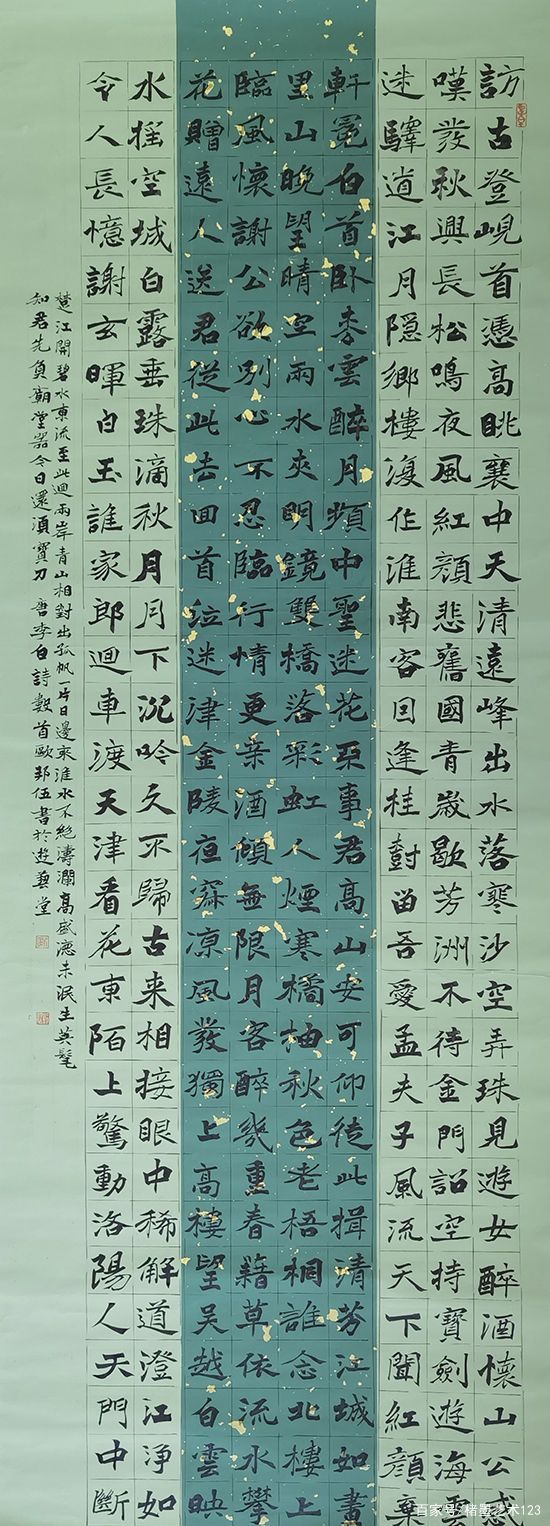 訪古登峴首憑高眺襄中天清遠峰出水落寒沙空弄珠見遊女醉酒懷山公感
嘆發秋興長松鳴夜風紅顏悲舊國青歲歇芳洲不待金門詔空持寶劍遊海雲
迷驛道江月隱鄉樓復作淮南客回逢桂樹留吾愛孟夫子風流天下聞紅顏棄
軒冕白首臥松雲醉月頻中聖迷花不事君高山安可仰徒此揖清芬江城如畫
里山晚望晴空兩水夾明鏡雙橋落彩虹人煙寒橘柚秋色老梧桐誰念北樓上
臨風懷謝公欲別心不忍臨行情更親酒傾無限月客醉幾重春籍草依流水攀
花贈遠人送君從此去回首泣迷津金陵夜深涼風發獨上高樓望吳越白雲映
水搖空城白露垂珠滴秋月月下沉吟久不歸古来相接眼中稀解道澄江淨如
令人長憶謝玄暉白玉誰家郎迴車渡天津看花東陌上驚動洛陽人天門中斷
楚江開碧水東流至此迴兩岸青山相對出孤帆一片日邊來淮水不絕濤瀾高盛德未泯生英髦
知君先負廟堂器今日還須寶刀 唐李白詩數首歐邦伍書於遊藝堂
百家号/楮墨艺术123